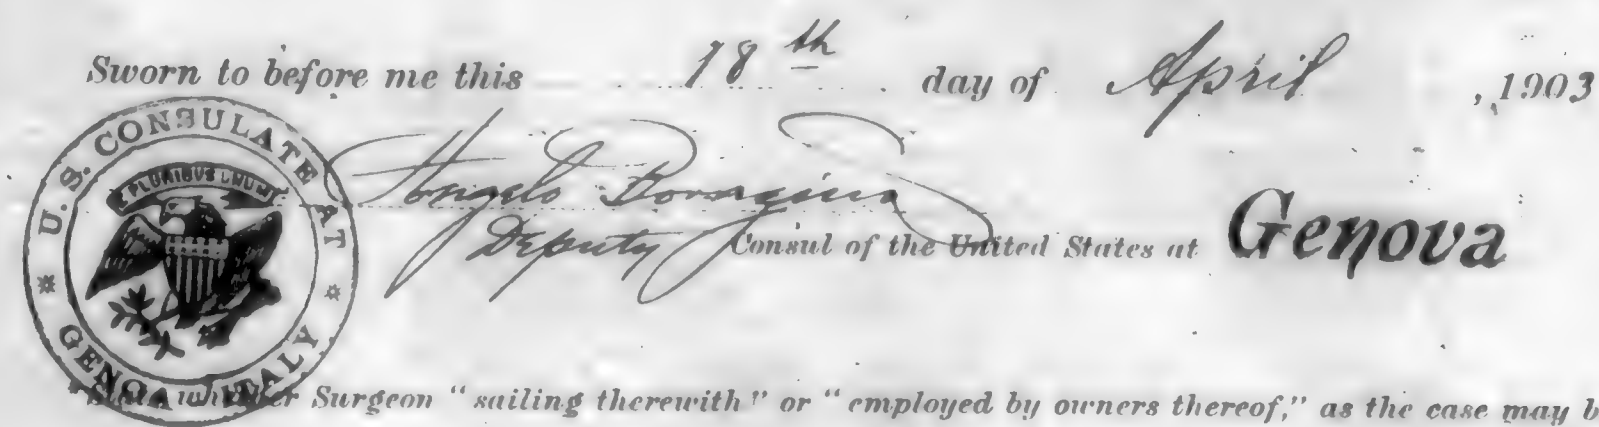 Sworn to before me this 18th day of April, 1903
U.S. CONSULATE AT
PLURIBUS UNUM
Angelo
Deputy Consul of the United States at Genova
* GENOA ITALY *
State whether Surgeon "sailing therewith" or "employed by owners thereof," as the case may b